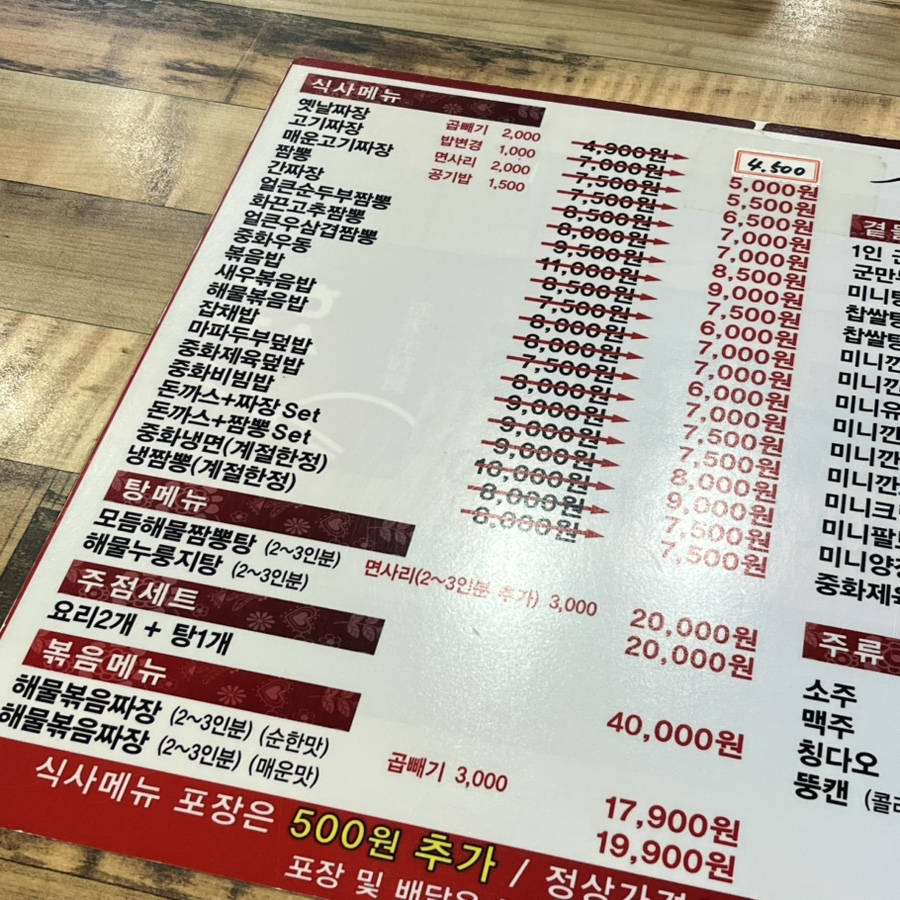 식사메뉴
옛날짜장
고기짜장
매운고기짜장
짬뽕
간짜장
얼큰순두부짬뽕
화끈고추짬뽕
얼큰우삼겹짬뽕
중화우동
볶음밥
새우볶음밥
해물볶음밥
잡채밥
마파두부덮밥
중화제육덮밥
중화비빔밥
돈까스+짜장 Set
돈까스+짬뽕 Set
중화냉면(계절한정)
냉짬뽕(계절한정)
곱빼기 2,000
밥변경 1,000
면사리 2,000
공기밥 1,500
4,900원
7,000원
7,500원
7,500원
8,500원
8,000원
9,500원
11,000원
8,500원
7,500원
8,000원
8,000원
7,500원
8,000원
9,000원
9,000원
9,000원
10,000원
8,000원
8,000원
4.500
5,000원
5,500원
6,500원
7,000원
7,000원
8,500원
9,000원
7,500원
6,000원
7,000원
7,000원
6,000원
7,000원
7,500원
7,500원
8,000원
9,000원
7,500원
7,500원
탕메뉴
모듬해물짬뽕탕 (2~3인분) 20,000원
해물누룽지탕 (2~3인분) 20,000원
면사리(2~3인분 추가) 3,000
주점세트
요리2개 + 탕1개 40,000원
볶음메뉴
해물볶음짜장 (2~3인분) (순한맛) 17,900원
해물볶음짜장 (2~3인분) (매운맛) 19,900원
곱빼기 3,000
식사메뉴 포장은 500원 추가 / 정상가격
포장 및
1인
미니
찹쌀
찹쌀
미니
미니
미니
미니
미니
미니
미니
미니
미니
중화제육
주류
소주
맥주
칭다오
뚱캔